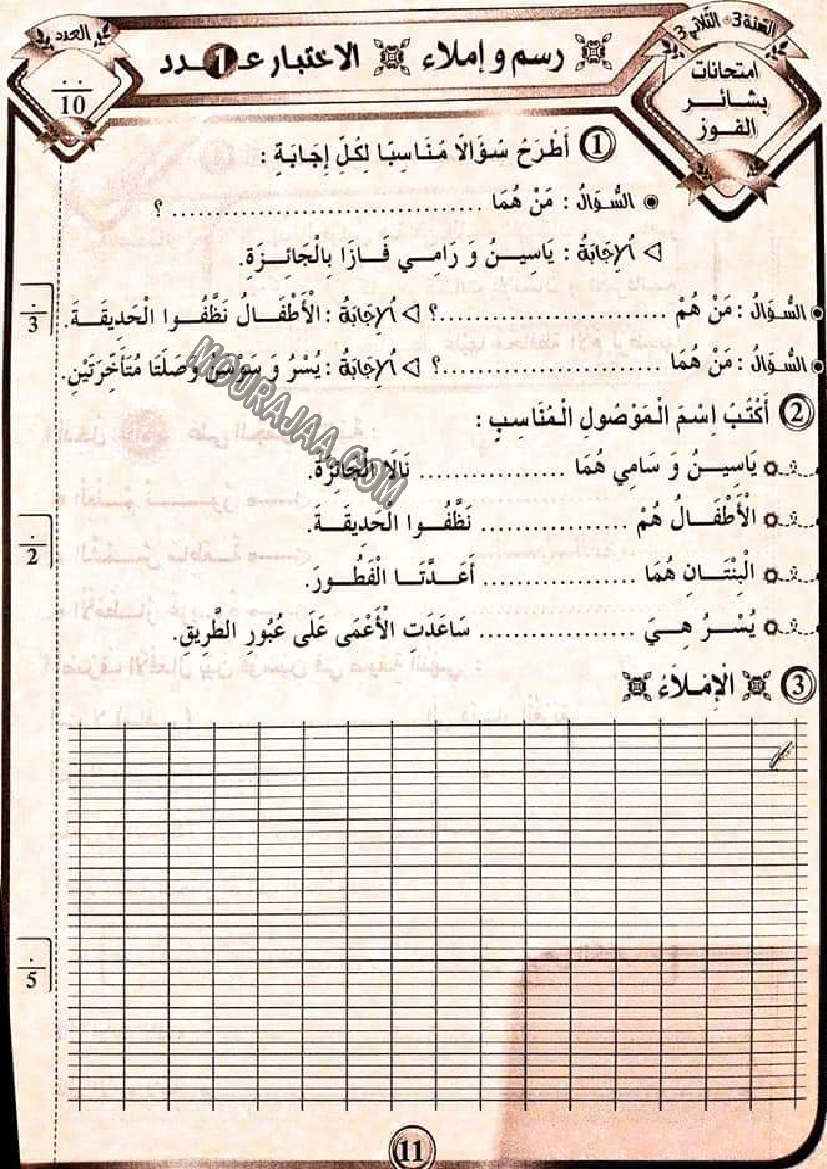 السّنة 3 - الثّلاثي 3
امتحانات
بشائر
الفوز
رسم و إملاء الاختبار عـ 1 ـدد
العدد
10
1 أَطْرَحُ سُؤَالًا مُنَاسِبًا لِكُلِّ إِجَابَةٍ :
السُّؤَالُ : مَنْ هُمَا .................................. ؟
اَلإِجَابَةُ : يَاسِينُ وَ رَامِي فَازَا بِالْجَائِزَةِ.
السُّؤَالُ : مَنْ هُمْ ..........................؟ اَلإِجَابَةُ : الْأَطْفَالُ نَظَّفُوا الْحَدِيقَةَ.
3
السُّؤَالُ : مَنْ هُمَا ..........................؟ اَلإِجَابَةُ : يُسْرُ وَ سَوْسَنُ وَصَلَتَا مُتَأَخِّرَتَيْنِ.
MOURAJAA.COM
2 أَكْتُبُ اِسْمَ الْمَوْصُولِ الْمُنَاسِبِ :
يَاسِينُ وَ سَامِي هُمَا .................. نَالَا الْجَائِزَةَ.
الْأَطْفَالُ هُمْ .................. نَظَّفُوا الْحَدِيقَةَ.
2
الْبِنْتَانِ هُمَا .................. أَعَدَّتَا الْفَطُورَ.
يُسْرُ هِيَ .................. سَاعَدَتِ الْأَعْمَى عَلَى عُبُورِ الطَّرِيقِ.
3 الْإِمْلَاءُ
5
11